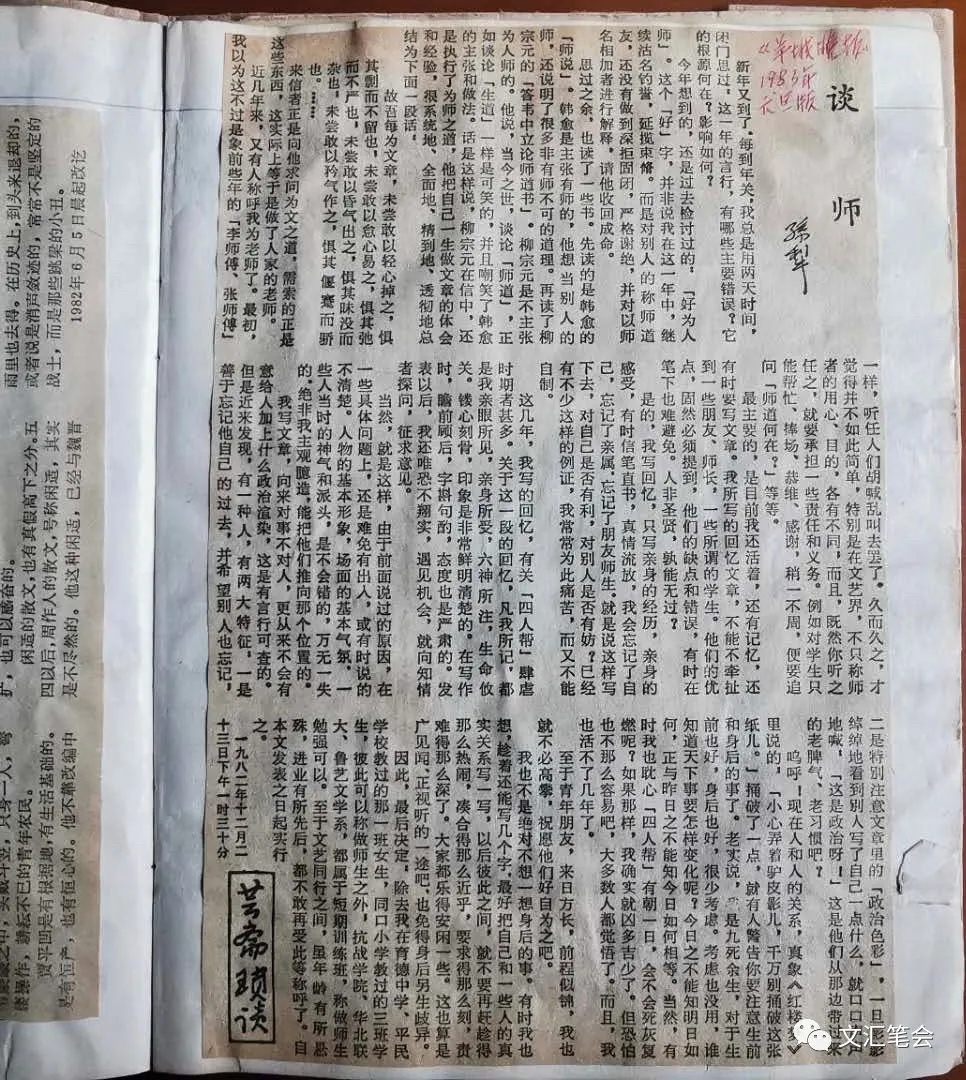 谈师
孙犁
《羊城晚报》
1983年
元旦版
新年又到了。每到年关，我总是用两天时间，
闭门思过，这一年的言行，有哪些主要错误？它
的根源何在？影响如何？
今年想到的，还是过去检讨过的："好为人
师"。这个"好"字，并非说我在这一年中，继
续沽名钓誉，延揽束脩。而是对别人的称师道
友，还没有做到深拒固闭，严格谢绝，并对以师
名相加者进行解释，请他收回成命。
思过之余，也读了一些书。先读的是韩愈的
"师说"。韩愈是主张有师的，他想当别人的
师，还说明了很多非有师不可的道理。再读了柳
宗元的"答韦中立论师道书"。柳宗元是不主张
为人师的。他说，当今之世，谈论"师道"，正
如谈论"生道"一样是可笑的，并且嘲笑了韩愈
的主张和做法。话是这样说，柳宗元在信中，还
是执行了为师之道，他把自己一生做文章的体会
和经验，很系统地、全面地、精到地、透彻地总
结为下面一段话。
故吾每为文章，未尝敢以轻心掉之，惧
其剽而不留也，未尝敢以怠心易之，惧其弛
而不严也，未尝敢以昏气出之，惧其昧没而
杂也，未尝敢以矜气作之，惧其偃蹇而骄
也。……
来信者正是向他求问为文之道，需索的正是
这些东西，这实际上等于是做了人家的老师。
近几年来，又有人称呼我为老师了。最初，
我以为这不过是象前些年的"李师傅、张师傅"
一样，听任人们胡喊乱叫去罢了。久而久之，才
觉得并不如此简单，特别是在文艺界，不只称师
者的用心、目的，各有不同，而且，既然你听之
任之，就要承担一些责任和义务。例如对学生只
能帮忙、捧场、恭维、感谢，稍一不周，便要追
问"师道何在？"等等。
最主要的，是目前我还活着，还有记忆，还
有时要写文章。我所写的回忆文章，不能不牵扯
到一些朋友、师长，一些所谓的学生。他们的优
点，固然必须提到，他们的缺点和错误，有时在
笔下也难避免。人非圣贤，孰能无过？
是的，我写回忆，只写亲身的经历，亲身的
感受，有时信笔直书，真情流放，我会忘记了自
己，忘记了亲属，忘记了朋友师生。就是说这样写
下去，对自己是否有利，对别人是否有妨？已经
有不少这样的例证，我常常为此痛苦，而又不能
自制。
这几年，我写的回忆，有关"四人帮"肆虐
时期者甚多。关于这一段的回忆，凡我所记，都
是我亲眼所见，亲身所受，六神所注，生命攸
关。镂心刻骨，印象是非常鲜明清楚的。在写作
时，瞻前顾后，字斟句酌，态度也是严肃的。发
表以后，我还唯恐不翔实，遇见机会，就向知情
者探问，征求意见。
当然，就是这样，由于前面说过的原因，在
一些具体问题上，还是难免有出入，或有时说的
不清楚。人物的基本形象，场面的基本气氛，一
些人当时的神气和派头，是不会错的，万无一失
的，绝非我主观臆造，能把他们推向那个位置的。
我写文章，向来对事不对人，更从来不会有
意给人加上什么政治渲染，这是有言行可查的。
但是近来发现，有一种人，有两大特征，一是
善于忘记他自己的过去，并希望别人也忘记，
二是特别注意文章里的"政治色彩"，一旦影影
绰绰地看到别人写了自己一点什么，就口口声声
地喊："这是政治呀！"这是他们从那边带过来
的老脾气、老习惯吧？
呜呼！现在人和人的关系，真象《红楼梦》
里说的："小心弄着驴皮影儿，千万别捅破这张
纸儿。"捅破了一点，就有人警告你要注意生前
和身后的事了。老实说，我是九死余生，对于生
前也好，身后也好，很少考虑。考虑也没用，谁
知道天下事要怎样变化呢？今日之不能知明日如
何，正与昨日之不能知今日如何相等。当然，有
时我也耽心，"四人帮"有朝一日，会不会死灰复
燃呢？如果那样，我确实就凶多吉少了。但恐怕
也不那么容易吧，大多数人都觉悟了。而且，我
也活不了几年了。
至于青年朋友，来日方长，前程似锦，我也
就不必高攀，祝愿他们好自为之吧。
我也不是绝对不想一想身后的事。有时我也
想，趁着还能写几个字，最好把自己和一些人的真
实关系写一写，以后彼此之间，就不要再赶趁得
那么热闹，凑合得那么近乎，要求得那么刻，责
难得那么深了。大家都乐得安闲一些。这也算是
广见闻、正视听的一途吧。也免得身后另生歧异。
因此，最后决定：除去我在育德中学、平民
学校教过的那一班女生，同口小学教过的三班学
生，彼此可以称做师生之外，抗战学院、华北联
大、鲁艺文学系，都属于短期训练班，称做师生
勉强可以。至于文艺同行之间，虽年龄有所悬
殊，进业有所先后，都不敢再受此等称呼了。自
本文发表之日起实行
之。
一九八二年十二月二
十三日下午一时三十分
芸斋琐谈
扩，也可以感奋的。
闲适的散文，也有真假高下之分。五
四以后，周作人的散文，号称闲适，其实
是不尽然的。他这种闲适，已经与魏晋
雨里也去得。在历史上，到头来退却的，
或者说是消声敛迹的，常常不是坚定的
战士，而是那些跳梁的小丑。
1982年6月5日晨起改讫
操作，耕耘不已的青年农民。
贾平凹是有根据地，有生活基础的。
是有恒产，也有恒心的。他不靠改编中
文汇笔会